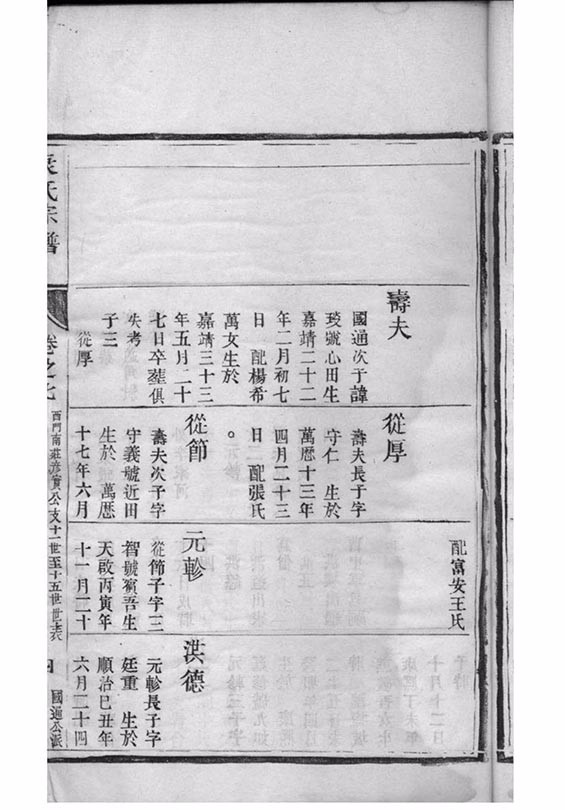 壽夫
國通次子諱
琰號心田生
嘉靖二十二
年二月初七
日　配楊希
萬女生於
嘉靖三十三
年五月二十
七日卒葬俱
失考
子三
從厚
從厚
壽夫長子字
守仁　生於
萬厯十三年
四月二十三
日　配張氏
。
從節
壽夫次子字
守義號近田
生於　萬厯
十七年六月
配富安王氏
元軫
從節子字三
智號賓吾生
天啟丙寅年
十一月二十
洪德
元軫長子字
廷重　生於
順治己丑年
六月二十四
氏宗譜
卷之七
西門南莊濟寰公支十一世至十五世世表
國通公派